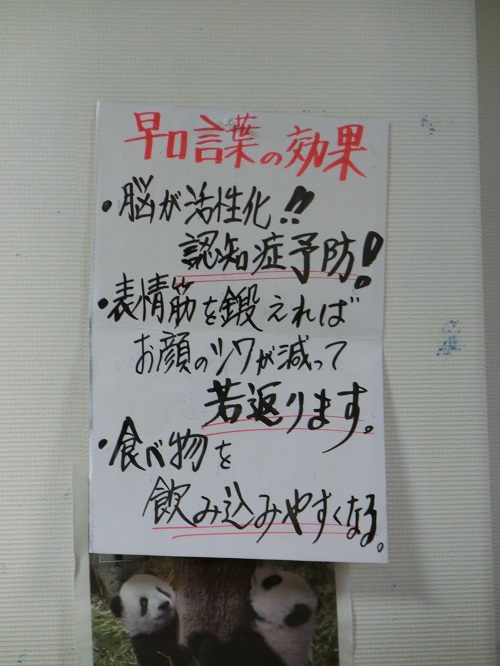 早口言葉の効果
・脳が活性化!!
認知症予防!
・表情筋を鍛えれば
お顔のシワが減って
若返ります。
・食べ物を
飲み込みやすくなる。